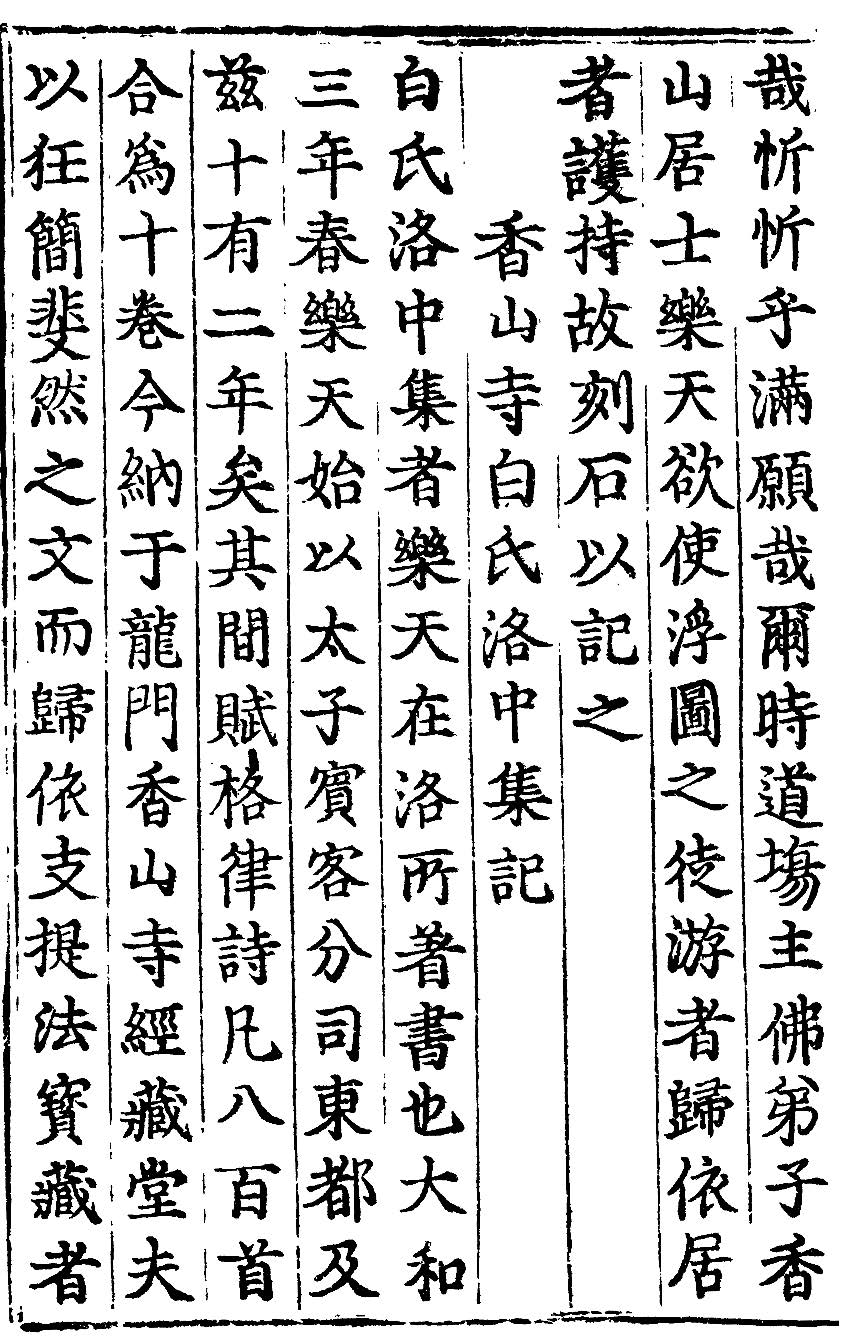 哉忻忻乎滿願哉爾時道塲主佛弟子香
山居士樂天欲使浮圖之徒游者歸依居
者護持故刻石以記之
香山寺白氏洛中集記
白氏洛中集者樂天在洛所著書也大和
三年春樂天始以太子賓客分司東都及
兹十有二年矣其間賦格律詩凡八百首
合爲十巻今納于龍門香山寺經藏堂夫
以狂簡斐然之文而歸依支提法寳藏者